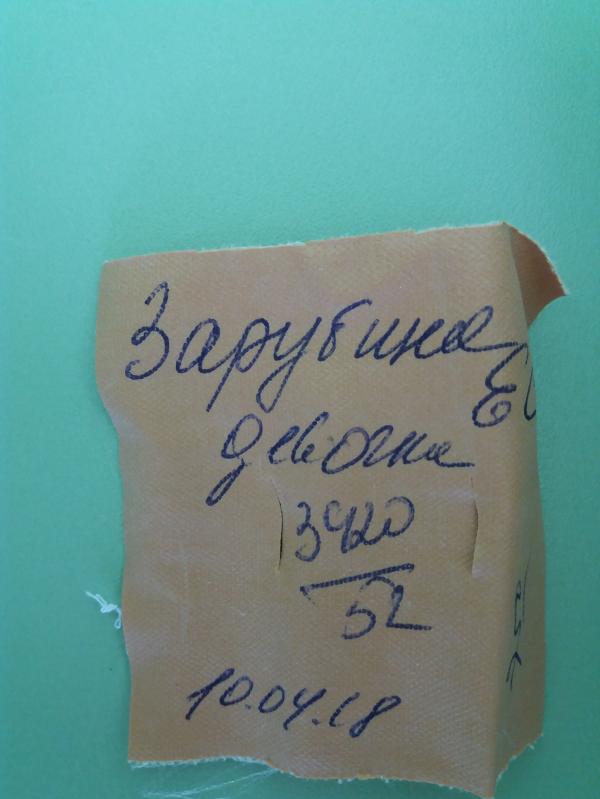 Зарубина
Е
девочка
3420
52
10.04.18